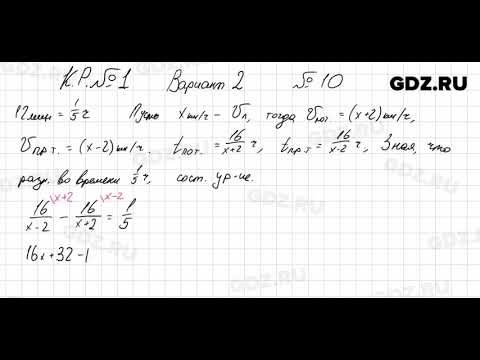 К.Р. №1 Вариант 2 № 10
GDZ.RU
12 мин = 1/5 ч Пусть x км/ч – Vп, тогда Vпот. = (x+2) км/ч,
Vпр.т. = (x-2) км/ч. tпот. = 16/x+2 ч, tпр.т = 16/x-2 ч, Зная, что
разн. во времени 1/5 ч, сост. ур-ие.
16/x-2 \x+2 – 16/x+2 \x-2 = 1/5
16x+32-1